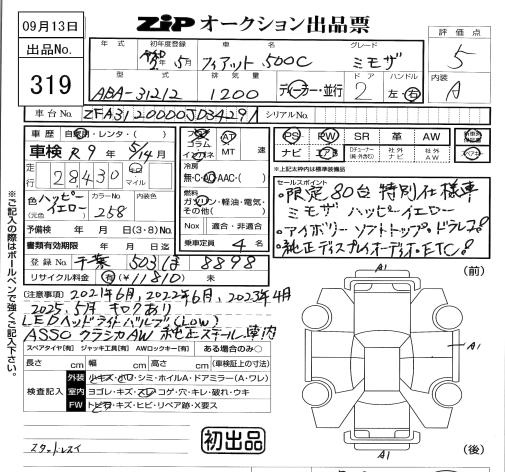 09月13日
ZiP オークション出品票
出品No.
319
年式 初年度登録 車名 グレード 評価点
R2年5月 フィアット 500C ミモザ 5
型式 排気量 ドア ハンドル 内装
ABA-31212 1200 ディーラー・並行 2 左・右 A
車台No. ZFA3120000JD34291 シリアルNo.
車歴 自家用・レンタ・( )
車検 R9年 5/14月
走行 28,430 km マイル
色 (元色) ハッピーイエロー カラーNo. 258 内装色
予備検 年 月 日 (3・8)No.
書類有効期限 年 月 日
登録No. 千葉 503 ほ 8898
リサイクル料金 有(¥11810) 未
コラム AT
MT 速
冷房
無・C・AC・AAC・( )
燃料
ガソリン・軽油・電気・その他( )
Nox 適合・非適合
乗車定員 4 名
PS PW SR 革 AW
ナビ エアB 社外ナビ 社外AW
※上記太枠内は標準装備品
セールスポイント
・限定80台 特別仕様車
ミモザ ハッピーイエロー
・アイボリーソフトトップ・ドラレコ!
・純正ディスプレイオーディオ・ETC!
(注意事項) 2021年6月, 2022年6月, 2023年4月
2025.5月 キロクあり
LEDヘッドライトバルブ(Low)
ASSO クラシカAW 純正スチール車内
スペアタイヤ[有] ジャッキ工具[有] AWロックキー[有] ある場合のみ○
長さ cm 幅 cm 高さ cm (車検証上の寸法)
検査記入
外装 少キズ・凹ワ・シミ・ホイルA・ドアミラー(A・ワレ)
室内 ヨゴレ・キズ・スレ・コゲ・穴・キレ・破れ・ウキ
FW トビ石・キズ・ヒビ・リペア跡・X要ス
スタットレスイ
初出品
(前)
A1
A1
A1
(後)
※ご記入の際はボールペンで強くご記入下さい。